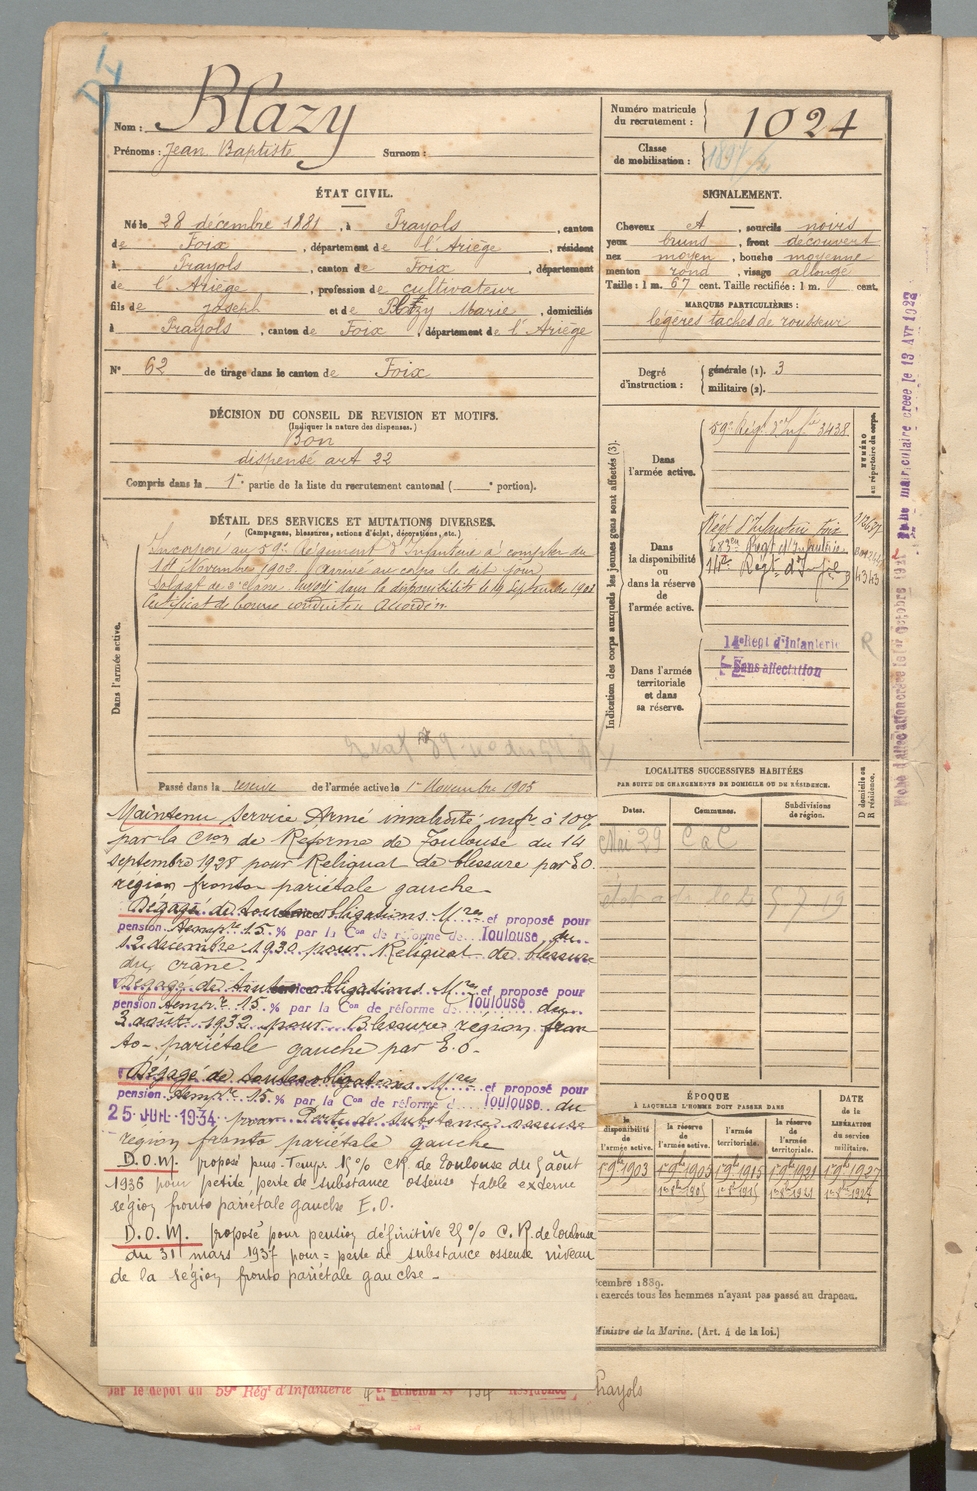 Nom : Blazy
Prénoms : Jean Baptiste Surnom :
Numéro matricule du recrutement : 1024
Classe de mobilisation :
ÉTAT CIVIL.
Né le 28 décembre 1881, à Prayols, canton
de Foix, département de l'Ariège, résidant
à Prayols, canton de Foix, département
de l'Ariège, profession de cultivateur
fils de Joseph et de Blazy Marie, domiciliés
à Prayols, canton de Foix, département de l'Ariège
N° 62 de tirage dans le canton de Foix
SIGNALEMENT.
Cheveux A, sourcils noirs
yeux bruns, front découvert
nez moyen, bouche moyenne
menton rond, visage allongé
Taille : 1 m. 67 cent. Taille rectifiée : 1 m. cent.
MARQUES PARTICULIÈRES :
légères taches de rousseur
Degré d'instruction : générale (1). 3
militaire (2).
DÉCISION DU CONSEIL DE REVISION ET MOTIFS.
(Indiquer la nature des dispenses.)
Bon
dispensé art 22
Compris dans la 1re partie de la liste du recrutement cantonal ( e portion).
DÉTAIL DES SERVICES ET MUTATIONS DIVERSES.
(Campagnes, blessures, actions d'éclat, décorations, etc.)
Dans l'armée active.
Incorporé au 59e Régiment d'Infanterie à compter du
14 Novembre 1902. Arrivé au corps le dit jour
Soldat de 2e classe. Envoyé dans la disponibilité le 19 septembre 1903
Certificat de bonne conduite Accordé
Passé dans la réserve de l'armée active le 1er Novembre 1905
Indication des corps auxquels les jeunes gens sont affectés (3).
NUMÉRO au répertoire du corps.
Dans l'armée active.
59e Régt d'Infie 3438
Dans la disponibilité ou dans la réserve de l'armée active.
Régt d'Infanterie Foix
Régt d'Infanterie
Régt d'Infie
4343
Dans l'armée territoriale et dans sa réserve.
14e Régt d'Infanterie
Sans affectation
R
Fiche matriculaire créée le 13 Avr 1922
LOCALITÉS SUCCESSIVES HABITÉES
PAR SUITE DE CHANGEMENTS DE DOMICILE OU DE RÉSIDENCE.
Dates. Communes. Subdivisions de région. D domicile ou R résidence.
Mai 29 C a C
Maintenu Service Armé invalidité infre à 10%
par la Cion de Réforme de Toulouse du 14
septembre 1928 pour Reliquat de blessure par E.O.
région fronto pariétale gauche
Dégagé de toutes obligations Mres et proposé pour
pension tempre 15 % par la Con de réforme de Toulouse du
12 décembre 1930 pour Reliquat de blessure
du crâne.
Dégagé de toutes obligations Mres et proposé pour
pension tempre 15 % par la Con de réforme de Toulouse du
3 août 1932 pour Blessure région fron
to-pariétale gauche par E.O.
Dégagé de toutes obligations Mres et proposé pour
pension tempre 15 % par la Con de réforme de Toulouse du
25 JUIL 1934 pour Perte de substance osseuse
région fronto pariétale gauche
D.O.M. proposé pens. Temp. 15% CR de Toulouse du 5 août
1936 pour petite perte de substance osseuse table externe
région fronto pariétale gauche E.O.
D.O.M. proposé pour pension définitive 25 % C.R. de Toulouse
du 31 mars 1937 pour = perte de substance osseuse niveau
de la région fronto pariétale gauche
ÉPOQUE
À LAQUELLE L'HOMME DOIT PASSER DANS
DATE de la LIBÉRATION du service militaire.
la disponibilité de l'armée active. la réserve de l'armée active. l'armée territoriale. la réserve de l'armée territoriale.
1 9bre 1903 1 9bre 1905 1 9bre 1915 1 9bre 1921 1 9bre 1927
écembre 1889.
exercés tous les hommes n'ayant pas passé au drapeau.
Ministre de la Marine. (Art. 4 de la loi.)
par le dépôt du 59e Régt d'Infanterie 4e Echelon N° 134 Résidence Prayols